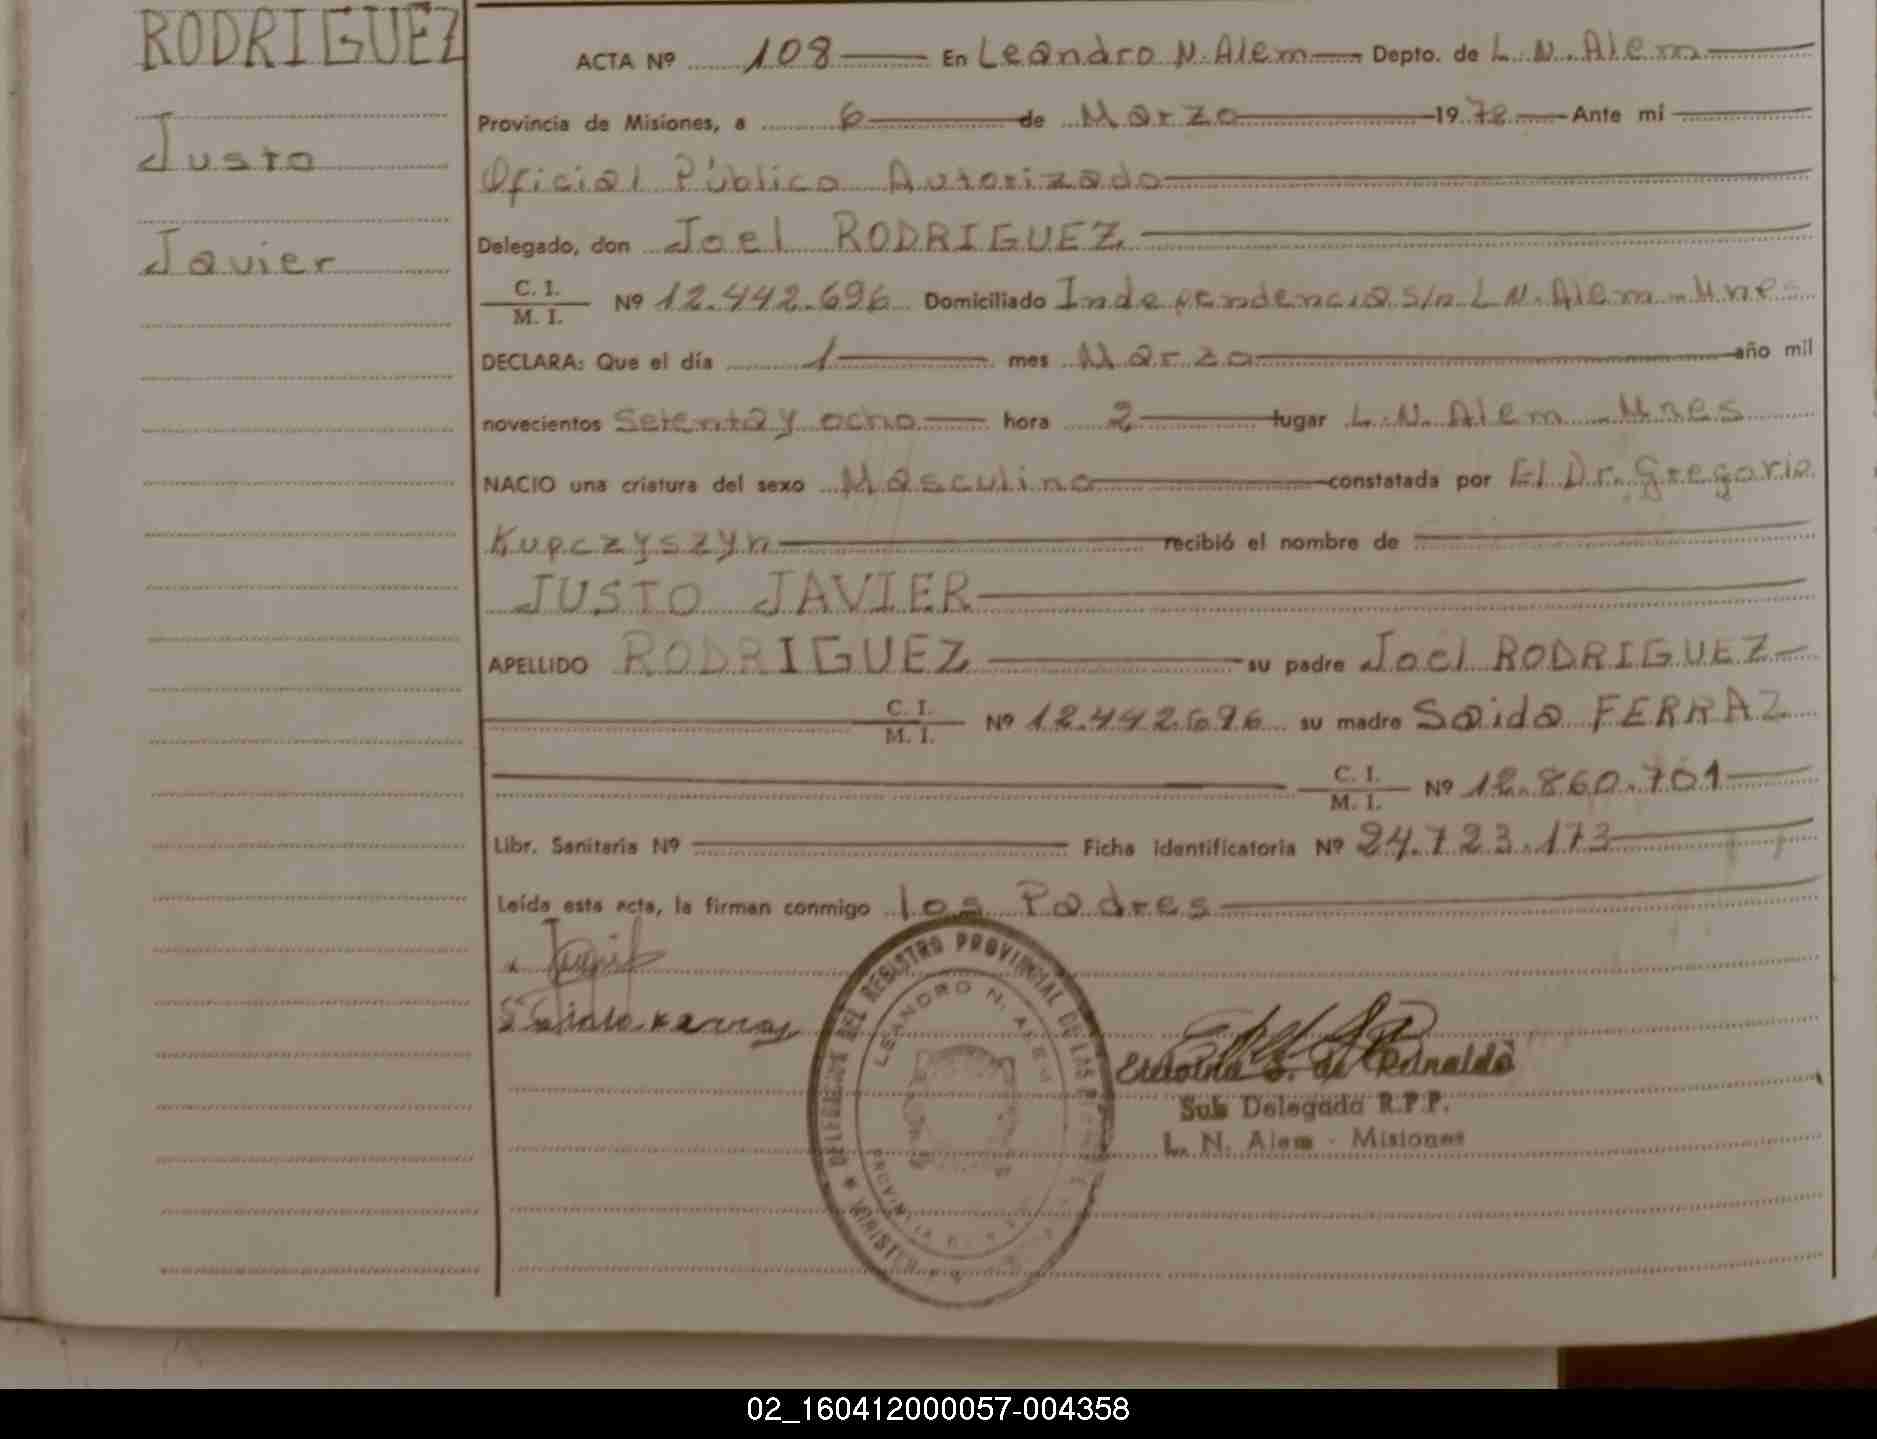 RODRIGUEZ
Justo
Javier
ACTA Nº 108 En Leandro N. Alem Depto. de L. N. Alem
Provincia de Misiones, a 6 de Marzo 1978 Ante mi
Oficial Público Autorizado
Delegado, don Joel RODRIGUEZ
C. I. / M. I. Nº 12.442.696 Domiciliado Independencia S/n L N. Alem - Mnes
DECLARA: Que el día 1 mes Marzo año mil
novecientos Setenta y ocho hora 2 lugar L. N. Alem - Mnes
NACIO una criatura del sexo Masculino constatada por El Dr. Gregorio
Kupczyszyn recibió el nombre de
JUSTO JAVIER
APELLIDO RODRIGUEZ su padre Joel RODRIGUEZ
C. I. / M. I. Nº 12.442.696 su madre Saida FERRAZ
C. I. / M. I. Nº 12.860.701
Libr. Sanitaria Nº Ficha identificatoria Nº 24.723.173
Leída esta acta, la firman conmigo los Padres
DELEGACION DEL REGISTRO PROVINCIAL DE LAS
LEANDRO N. ALEM
S. de Rinaldo
Sub Delegada R.P.P.
L. N. Alem - Misiones
02_160412000057-004358